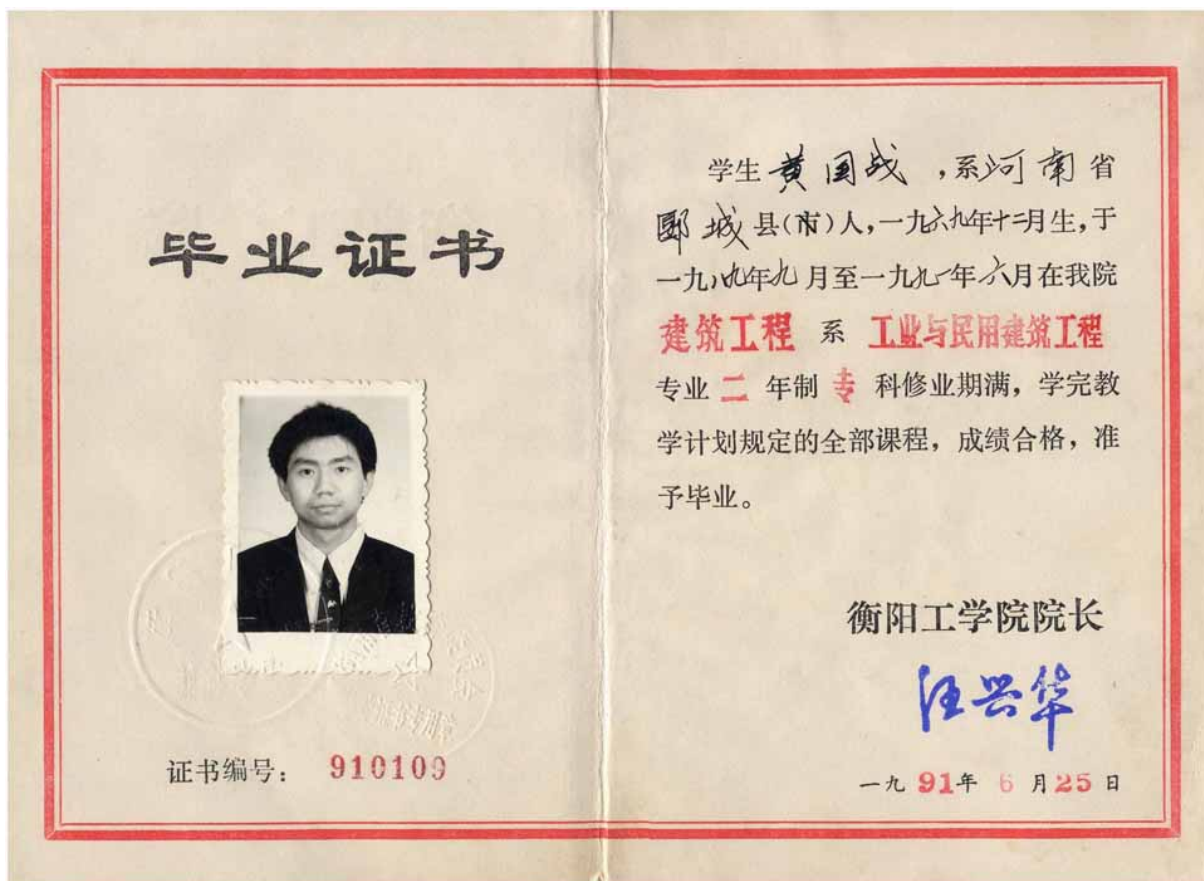 毕业证书
证书编号：910109
学生黄国战，系河南省
郾城县(市)人，一九六九年十二月生，于
一九八九年九月至一九九一年六月在我院
建筑工程 系 工业与民用建筑工程
专业 二 年制 专 科修业期满，学完教
学计划规定的全部课程，成绩合格，准
予毕业。
衡阳工学院院长
汪兴华
一九91年 6 月25日